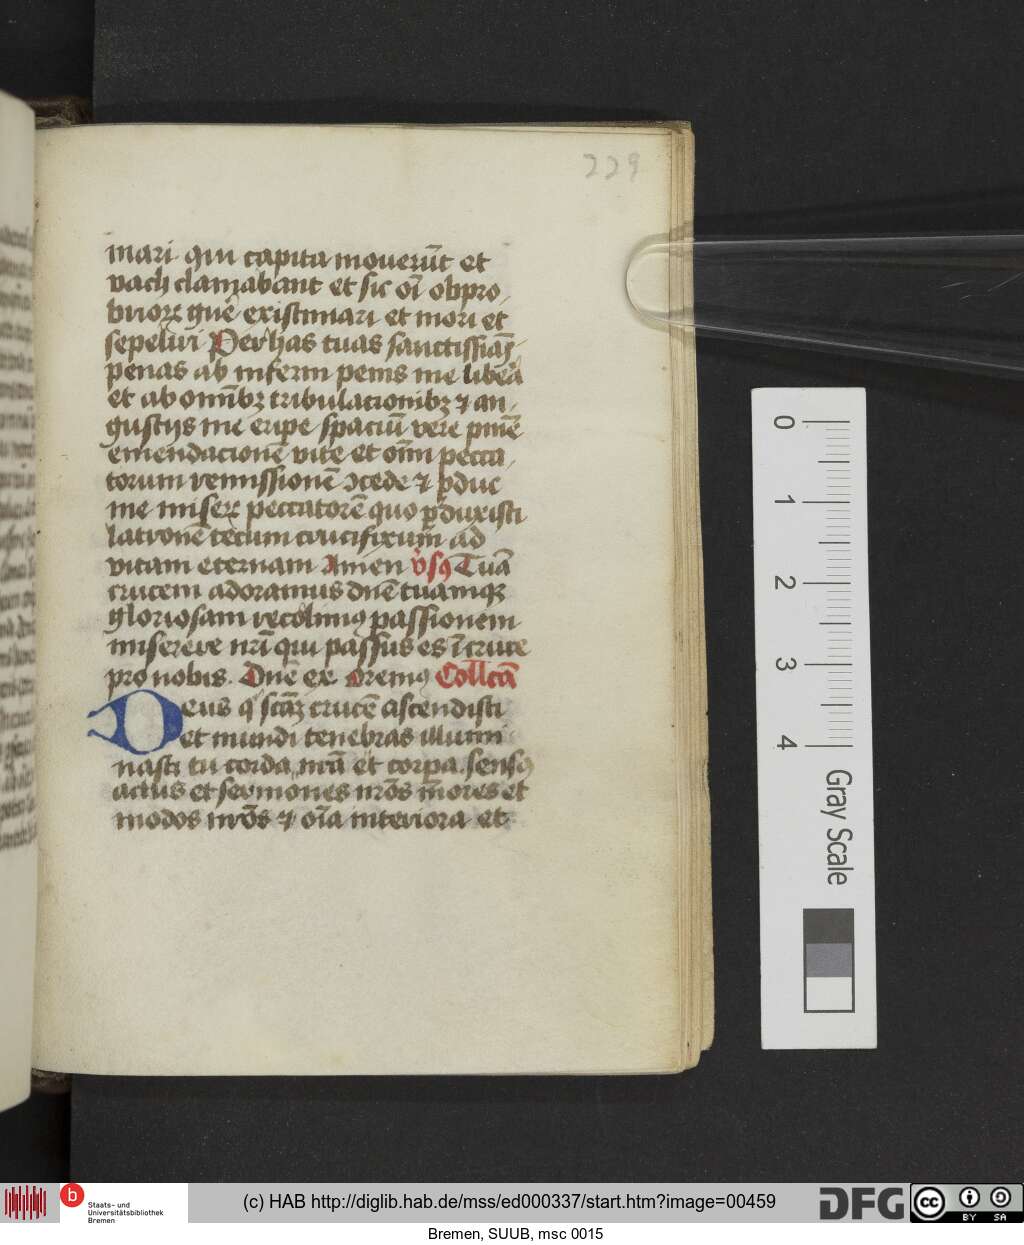 229
mari qui capita mouerūt et
vach clamabant et sic oī obpro
briorꝝ gn̄e existimari et mori et
sepeliri Per has tuas sanctissiās
penas ab inferni penis me libera
et ab omībꝫ tribulacionibꝫ ⁊ an
gustijs me eripe spaciū vere pnīe
emendacionē vite et oīm pecca
torum remissionē ↄcede ⁊ ꝑduc
me miserꝫ peccatorē quo ꝑduxisti
latronē tecum crucifixum ad
vitam eternam Amen v̓sꝯ Tuā
crucem adoramus dn̄e tuamqꝫ
gloriosam recolimꝯ passionem
miserere nr̄i qui passus es ī cruce
pro nobis. Dn̄e ex Oremꝯ Coll̄cā
Deus q scāꝫ crucē ascendisti
et mundi tenebras illumi
nasti tu corda nr̄a et corpa. sensꝯ
actus et sermones nr̄os mores et
modos nr̄os ⁊ oīa interiora et
0
1
2
3
4
Gray Scale
b
Staats- und
Universitätsbibliothek
Bremen
(c) HAB http://diglib.hab.de/mss/ed000337/start.htm?image=00459
DFG
cc
BY SA
Bremen, SUUB, msc 0015